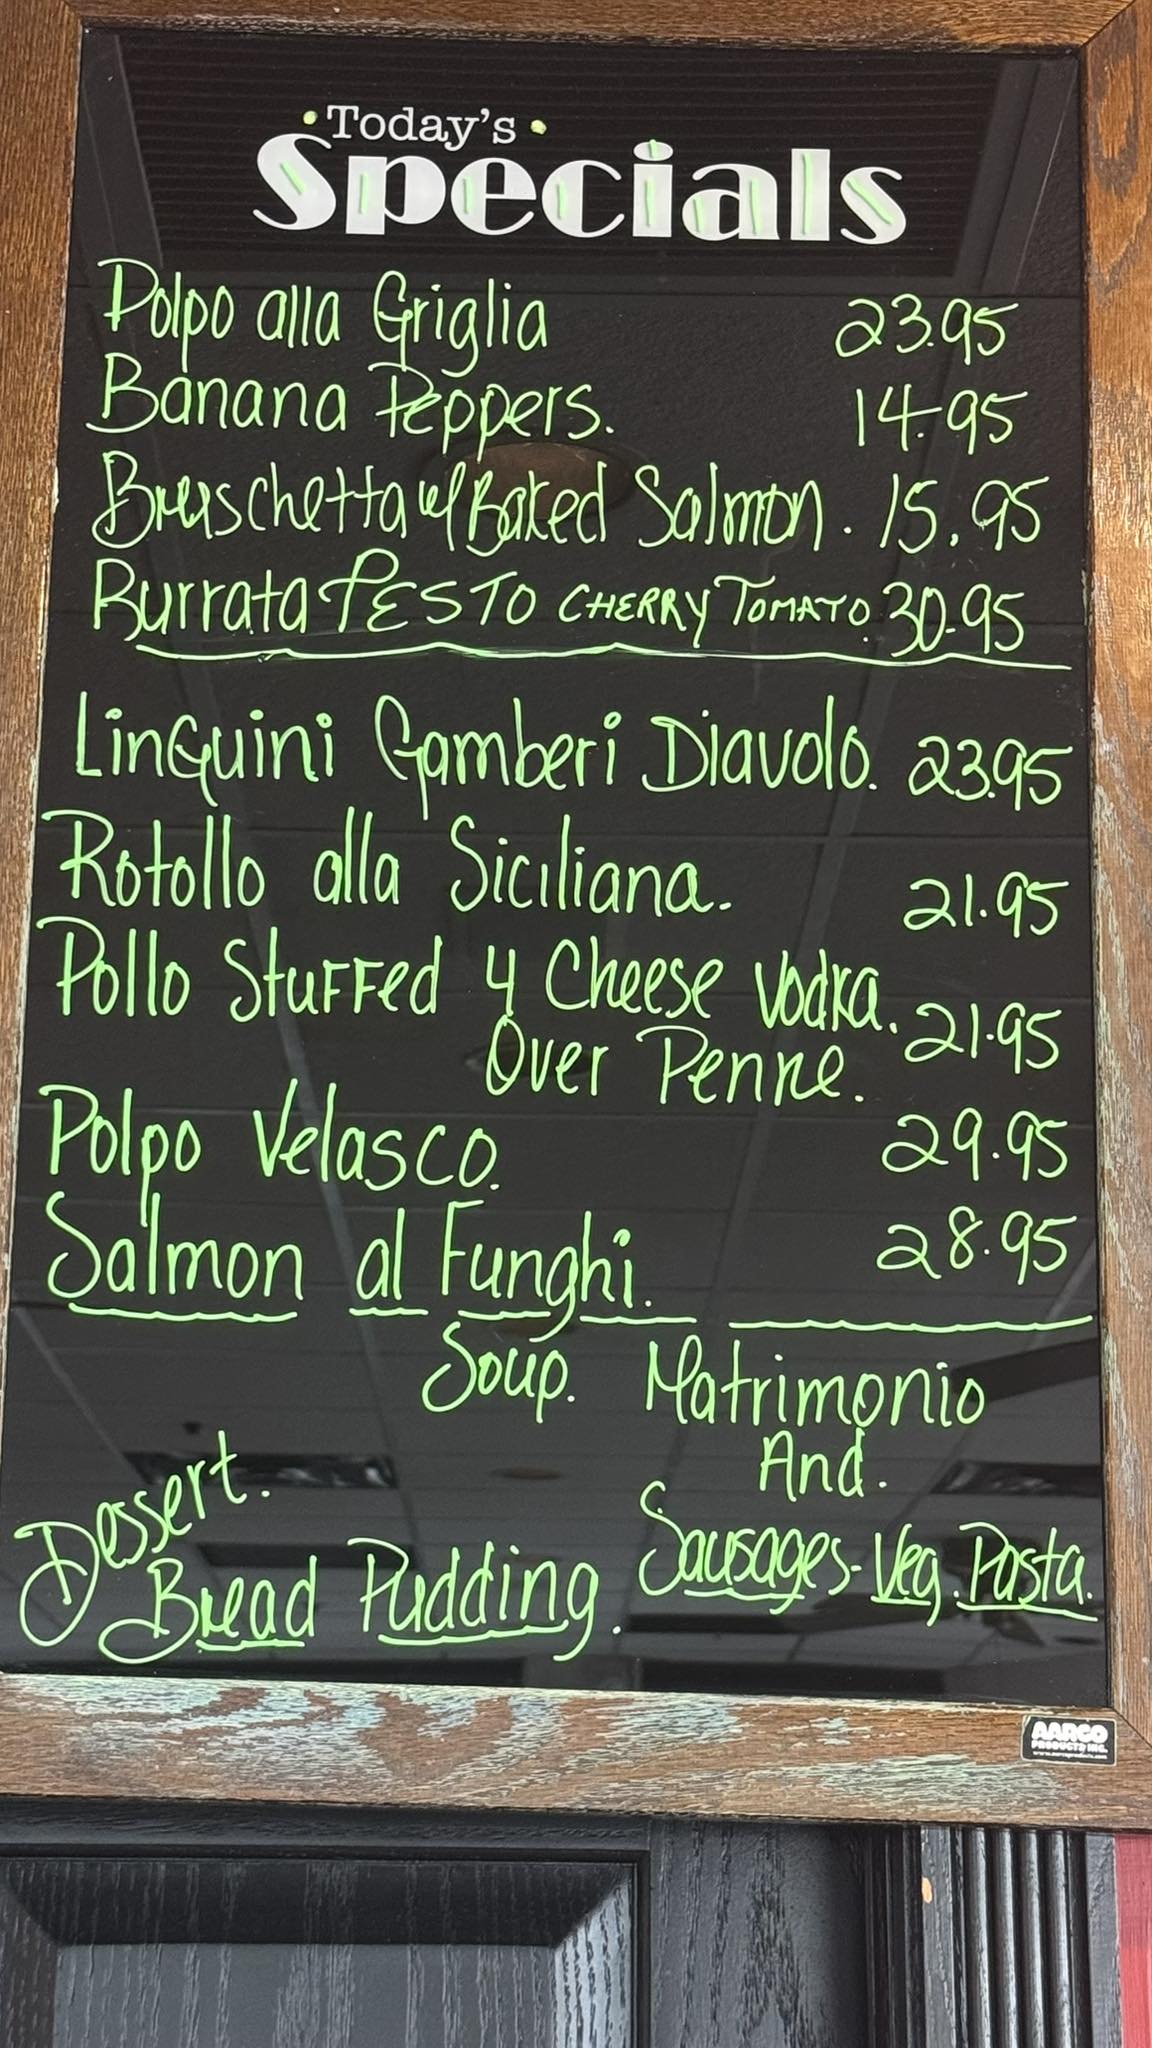 Today's
Specials
Polpo alla Griglia 23.95
Banana Peppers. 14.95
Bruschetta w/ Baked Salmon. 15.95
Burrata PESTO CHERRY TOMATO. 30.95
LinGuini Gamberi Diavolo. 23.95
Rotollo alla Siciliana. 21.95
Pollo Stuffed 4 Cheese Vodka. 21.95
Over Penne.
Polpo Velasco. 29.95
Salmon al Funghi. 28.95
Soup. Matrimonio
And.
Sausages-Veg. Pasta.
Dessert.
Bread Pudding.
AARCO
PRODUCTS INC.